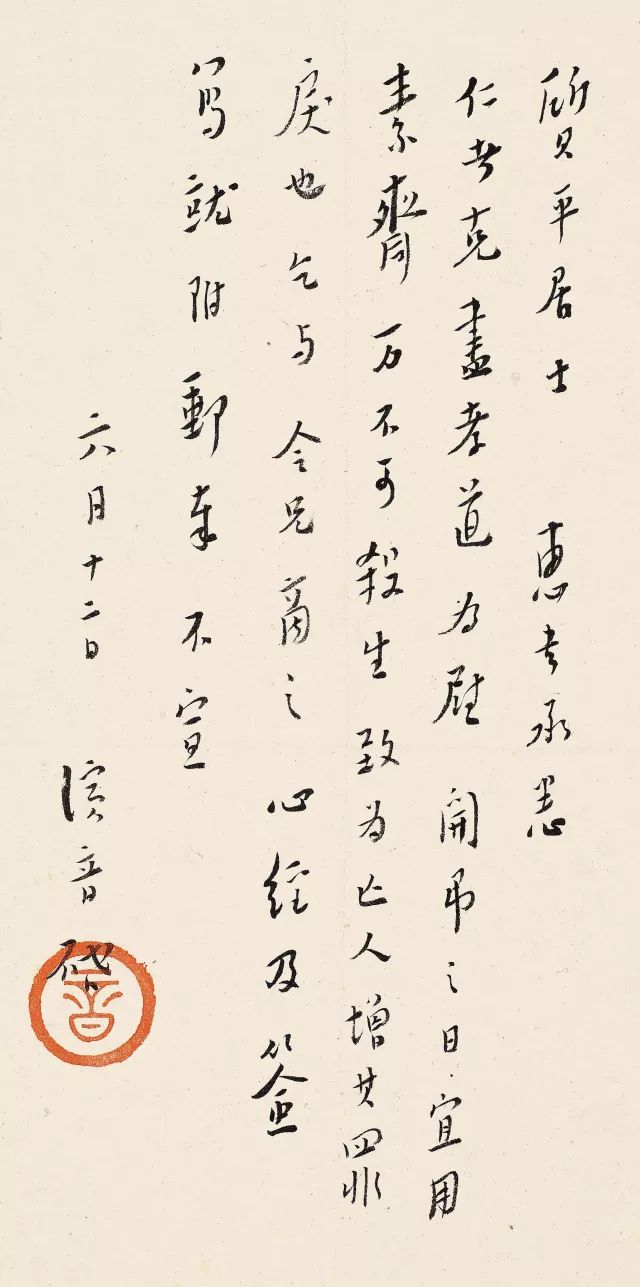 質平居士 惠書承悉
仁者克盡孝道为慰 開弔之日宜用
素齋万不可殺生致为亡人增其罪
戾也乞与 令兄商之 心經及簽
写就附郵奉 不宣
六月十二日 演音啓